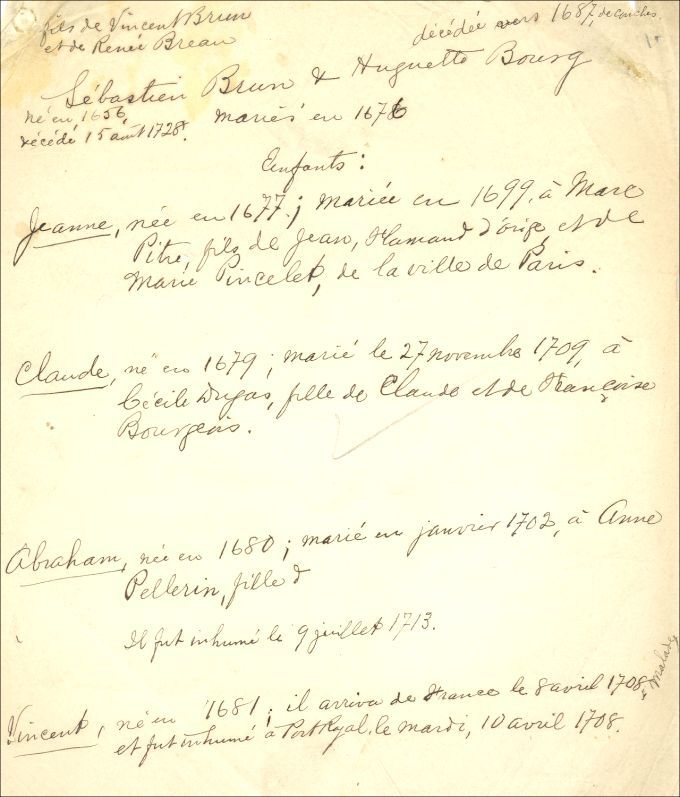 fils de Vincent Brun
et de Renée Breau
décédée vers 1687, de couches.
Sébastien Brun & Huguette Bourg
né en 1656,
décédé 15 août 1728.
mariés en 1676
Enfants :
Jeanne, née en 1677 ; mariée en 1699, à Marc
Pitre, fils de Jean, Flamand d'orig. et de
Marie Pincelet, de la ville de Paris.
Claude, né en 1679 ; marié le 27 novembre 1709, à
Cécile Dugas, fille de Claude et de Françoise
Bourgeois.
Abraham, née en 1680 ; marié en janvier 1702, à Anne
Pellerin, fille d
Il fut inhumé le 9 juillet 1713.
Vincent, né en 1681 ; il arriva de France le 8 avril 1708, malade
et fut inhumé à Port Royal, le mardi, 10 avril 1708.